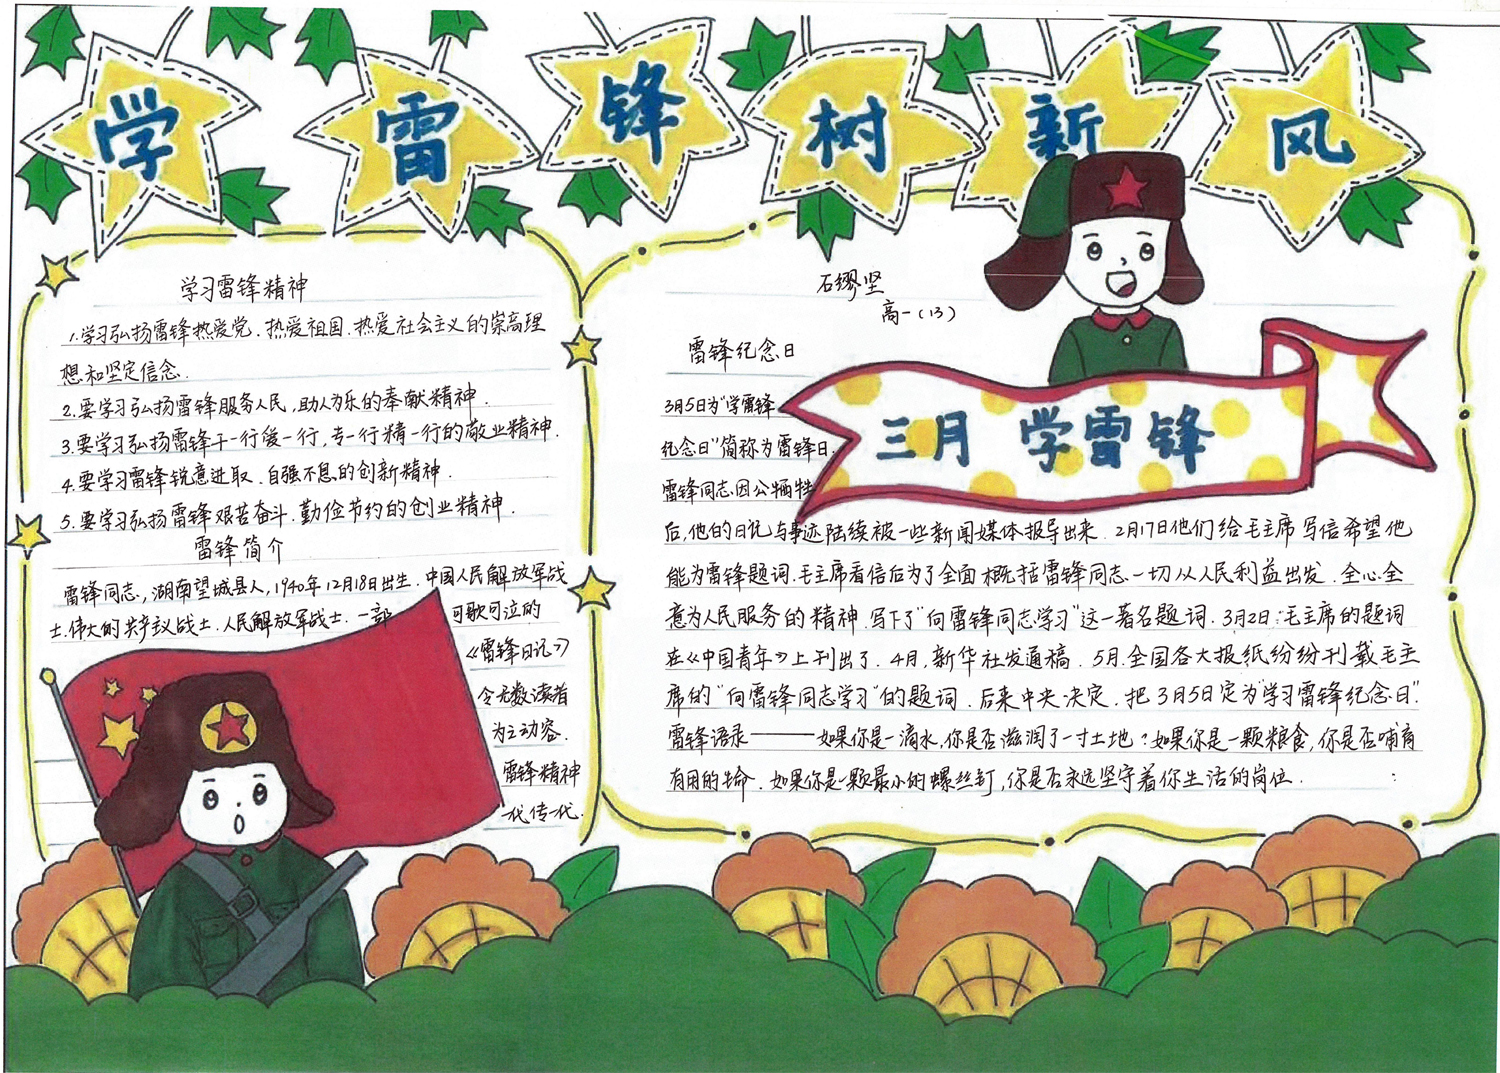 学雷锋树新风
学习雷锋精神
1.学习弘扬雷锋热爱党.热爱祖国.热爱社会主义的崇高理
想和坚定信念.
2.要学习弘扬雷锋服务人民,助人为乐的奉献精神.
3.要学习弘扬雷锋干一行爱一行,专一行精一行的敬业精神.
4.要学习雷锋锐意进取.自强不息的创新精神.
5.要学习弘扬雷锋艰苦奋斗.勤俭节约的创业精神.
雷锋简介
雷锋同志,湖南望城县人,1940年12月18日出生.中国人民解放军战
士.伟大的共产议战士.人民解放军战士.一部 可歌可泣的
《雷锋日记》
令无数读者
为之动容.
雷锋精神
一代传一代.
石缪坚
高一(13)
雷锋纪念日
三月 学雷锋
3月5日为"学雷锋
纪念日"简称为雷锋日.
雷锋同志因公牺牲
后,他的日记与事迹陆续被一些新闻媒体报导出来.2月17日他们给毛主席写信希望他
能为雷锋题词.毛主席看信后为了全面概括雷锋同志一切从人民利益出发.全心全
意为人民服务的精神.写下了"向雷锋同志学习"这一著名题词.3月2日:毛主席的题词
在《中国青年》上刊出了.4月,新华社发通稿.5月.全国各大报纸纷纷刊载毛主
席的"向雷锋同志学习"的题词.后来中央决定.把3月5日定为"学习雷锋纪念日".
雷锋语录———如果你是一滴水,你是否滋润了一寸土地?如果你是一颗粮食,你是否哺育
有用的生命.如果你是一颗最小的螺丝钉,你是否永远坚守着你生活的岗位.